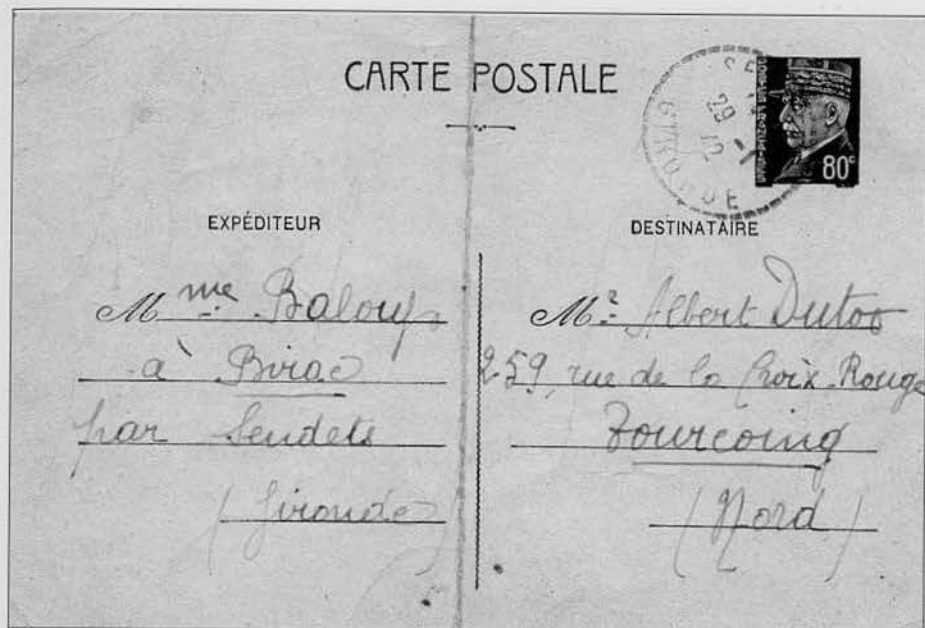 CARTE POSTALE
80c
GIRONDE
29
EXPÉDITEUR
Mme Balouf
à Birac
par Sendets
(Gironde)
DESTINATAIRE
Mr Albert
259, rue de la Croix-Rouge
Tourcoing
(Nord)